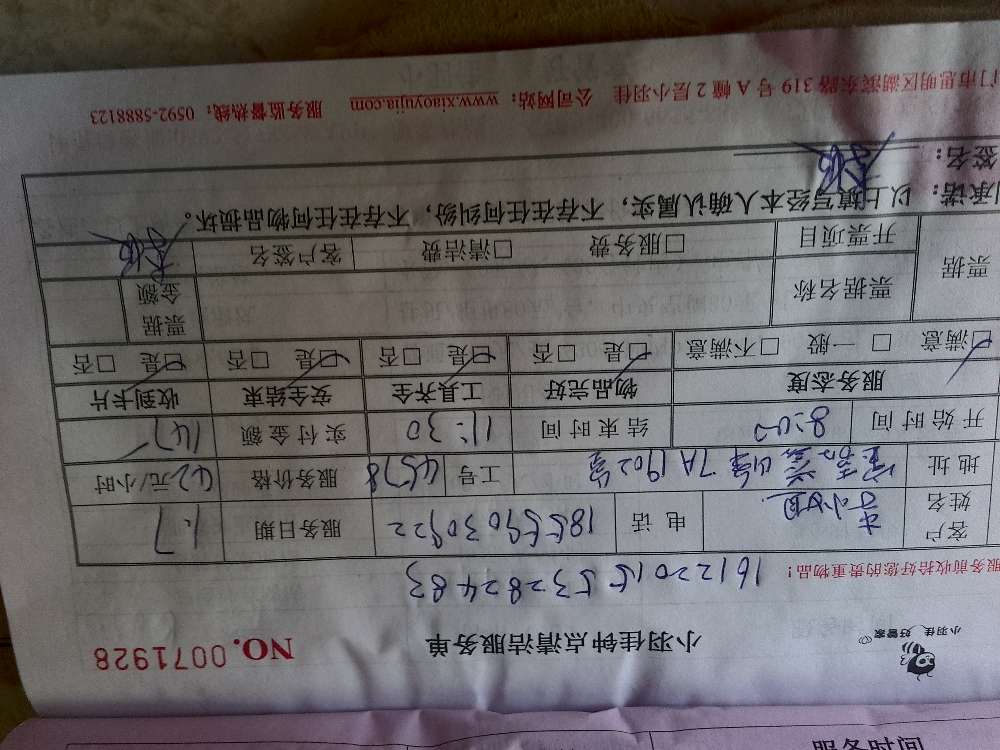 小羽佳 好管家
小羽佳钟点清洁服务单
NO.0071928
服务前收拾好您的贵重物品！
1612201553282483
客户姓名 李小姐 电话 18559030922 服务日期 1.7
地址 7A 1902室 工号 4578 服务价格 42元/小时
开始时间 8:00 结束时间 11:30 实付金额 147
服务态度 物品完好 工具齐全 安全结束 收到卡片
☑满意 □一般 □不满意 ☑是 □否 ☑是 □否 ☑是 □否 ☑是 □否
票据 票据名称 票据金额
开票项目 □服务费 □清洁费 客户签名
承诺：以上填写经本人确认属实，不存在任何纠纷，不存在任何物品损坏。
签名：
门市思明区湖滨东路 319 号 A 幢 2 层小羽佳 公司网站：www.xiaoyujia.com 服务监督热线：0592-5888123
服务时间